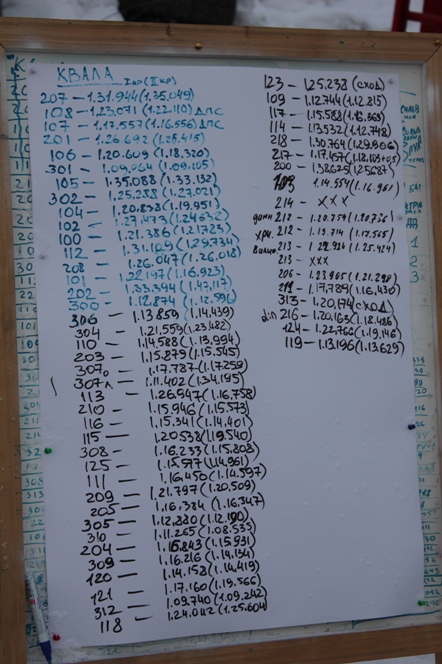 КВАЛА I кр (II кр)
207 – 1.31.944 (1.35.049)
108 – 1.23.071 (1.22.110) ДПС
107 – 1.17.557 (1.16.556) ДПС
201 – 1.26.692 (1.25.415)
106 – 1.20.609 (1.18.320)
301 – 1.09.064 (1.09.105)
105 – 1.35.088 (1.33.132)
302 – 1.25.238 (1.27.021)
104 – 1.20.838 (1.19.951)
102 – 1.27.473 (1.24.632)
100 – 1.21.386 (1.21.723)
112 – 1.31.169 (1.29.734)
208 – 1.26.047 (1.26.018)
101 – 1.22.197 (1.16.923)
202 – 1.33.394 (1.47.117)
300 – 1.12.874 (1.12.596)
306 – 1.13.859 (1.14.439)
304 – 1.21.559 (1.23.482)
110 – 1.14.588 (1.13.994)
203 – 1.15.879 (1.15.545)
307о – 1.17.787 (1.17.259)
307л – 1.11.402 (1.34.195)
113 – 1.26.947 (1.16.758)
210 – 1.15.946 (1.15.573)
116 – 1.15.341 (1.14.401)
115 – 1.20.538 (1.19.540)
308 – 1.16.233 (1.15.808)
125 – 1.15.577 (1.14.961)
111 – 1.16.450 (1.14.597)
209 – 1.21.797 (1.20.509)
205 – 1.16.384 (1.16.347)
305 – 1.12.880 (1.12.190)
310 – 1.11.265 (1.08.535)
204 – 1.15.843 (1.15.931)
309 – 1.16.216 (1.14.134)
120 – 1.14.158 (1.14.419)
121 – 1.17.160 (1.19.566)
312 – 1.09.740 (1.09.242)
118 – 1.24.042 (1.25.604)
123 – 1.25.238 (сход)
109 – 1.12.744 (1.12.815)
117 – 1.15.588 (1.16.369)
114 – 1.13.532 (1.12.748)
218 – 1.30.764 (1.29.906)
217 – 1.17.457 (1.18.103)
200 – 1.38.625 (1.25.687)
103 1.14.554 (1.16.961)
214 – ХХХ
212 – 1.20.754 (1.20.736)
хрн. 212 – 1.19.714 (1.17.565)
213 – 1.22.924 (1.25.424)
213 – ХХХ
206 – 1.23.965 (1.21.290)
211 – 1.17.789 (1.16.430)
313 – 1.20.174 (сход)
din 216 – 1.20.163 (1.18.486)
124 – 1.22.766 (1.19.146)
119 – 1.13.196 (1.13.629)